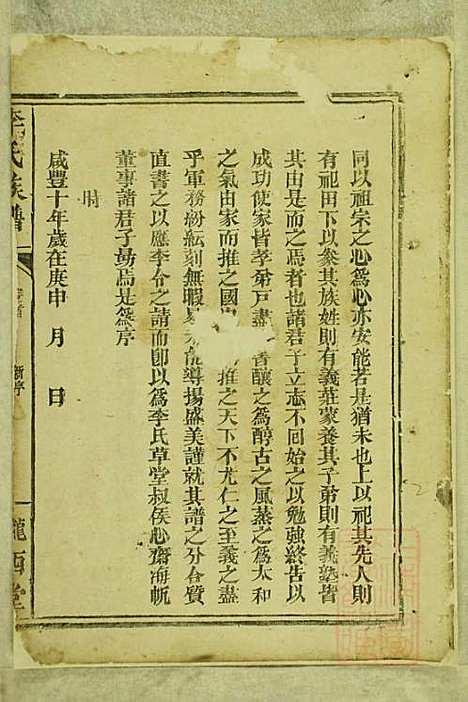 同以祖宗之心爲心亦安能若是猶未也上以祀其先人則
有祀田下以粢其族姓則有義莊蒙養其子弟則有義塾皆
其由是而之焉者也諸君子立志不回始之以勉強終吿以
成功使家皆孝弟戸盡 香釀之爲醇古之風蒸之爲太和
之氣由家而推之國 推之天下不尤仁之至義之盡
乎軍務紛紜刻無暇 能導揚盛美謹就其譜之分合質
直書之以應李令之請而卽以爲李氏草堂叔侯心齋海帆
董事諸君子勗焉是爲序
時
咸豐十年歲在庚申 月 日
李氏族譜
新序
隴西堂